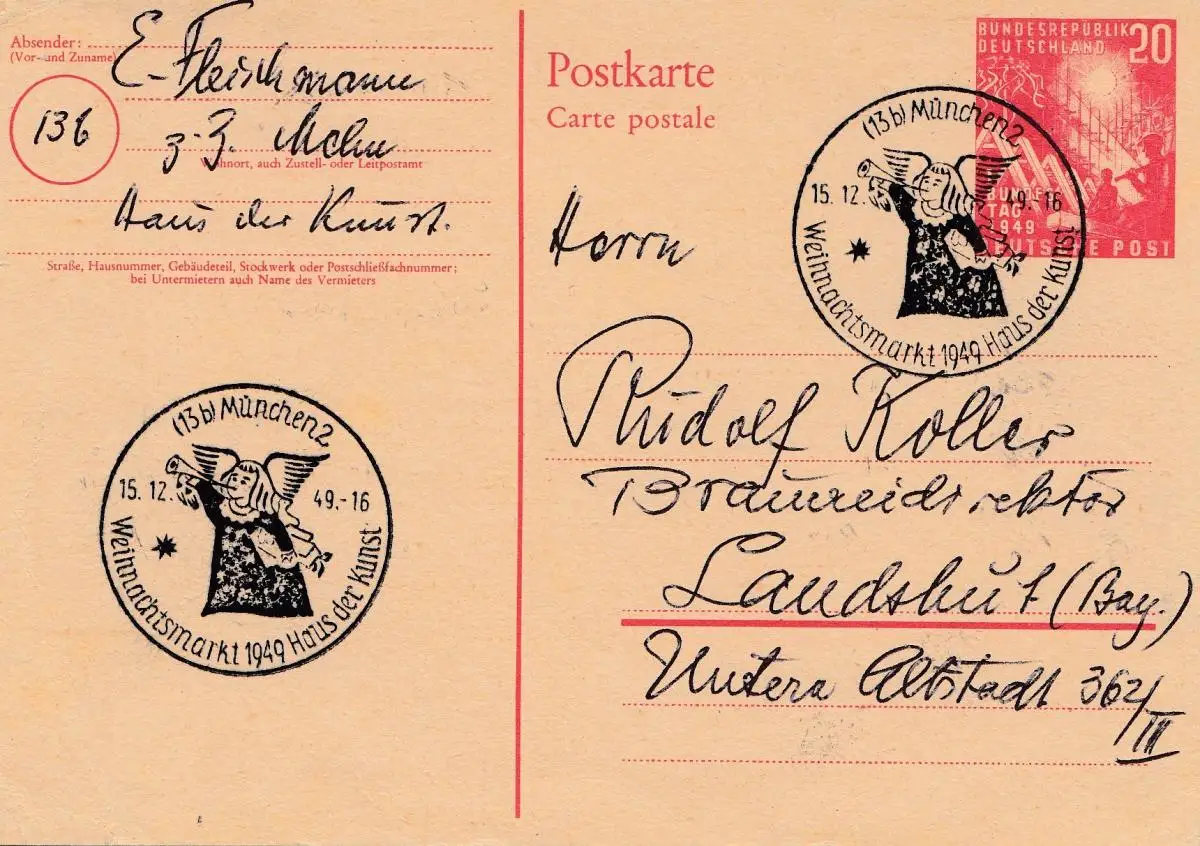 Absender:
(Vor- und Zuname)
E. Fleischmann
13b
z. Z. Mchn
Wohnort, auch Zustell- oder Leitpostamt
Haus der Kunst.
Straße, Hausnummer, Gebäudeteil, Stockwerk oder Postschließfachnummer;
bei Untermietern auch Name des Vermieters
(13b) München 2
15. 12. 49.-16
Weihnachtsmarkt 1949 Haus der Kunst
Postkarte
Carte postale
BUNDESREPUBLIK
DEUTSCHLAND 20
BUNDES
TAG
1949
DEUTSCHE POST
(13b) München 2
15. 12. 49.-16
Weihnachtsmarkt 1949 Haus der Kunst
Herrn
Rudolf Koller
Brauereidirektor
Landshut (Bay.)
Untere Altstadt 362/III